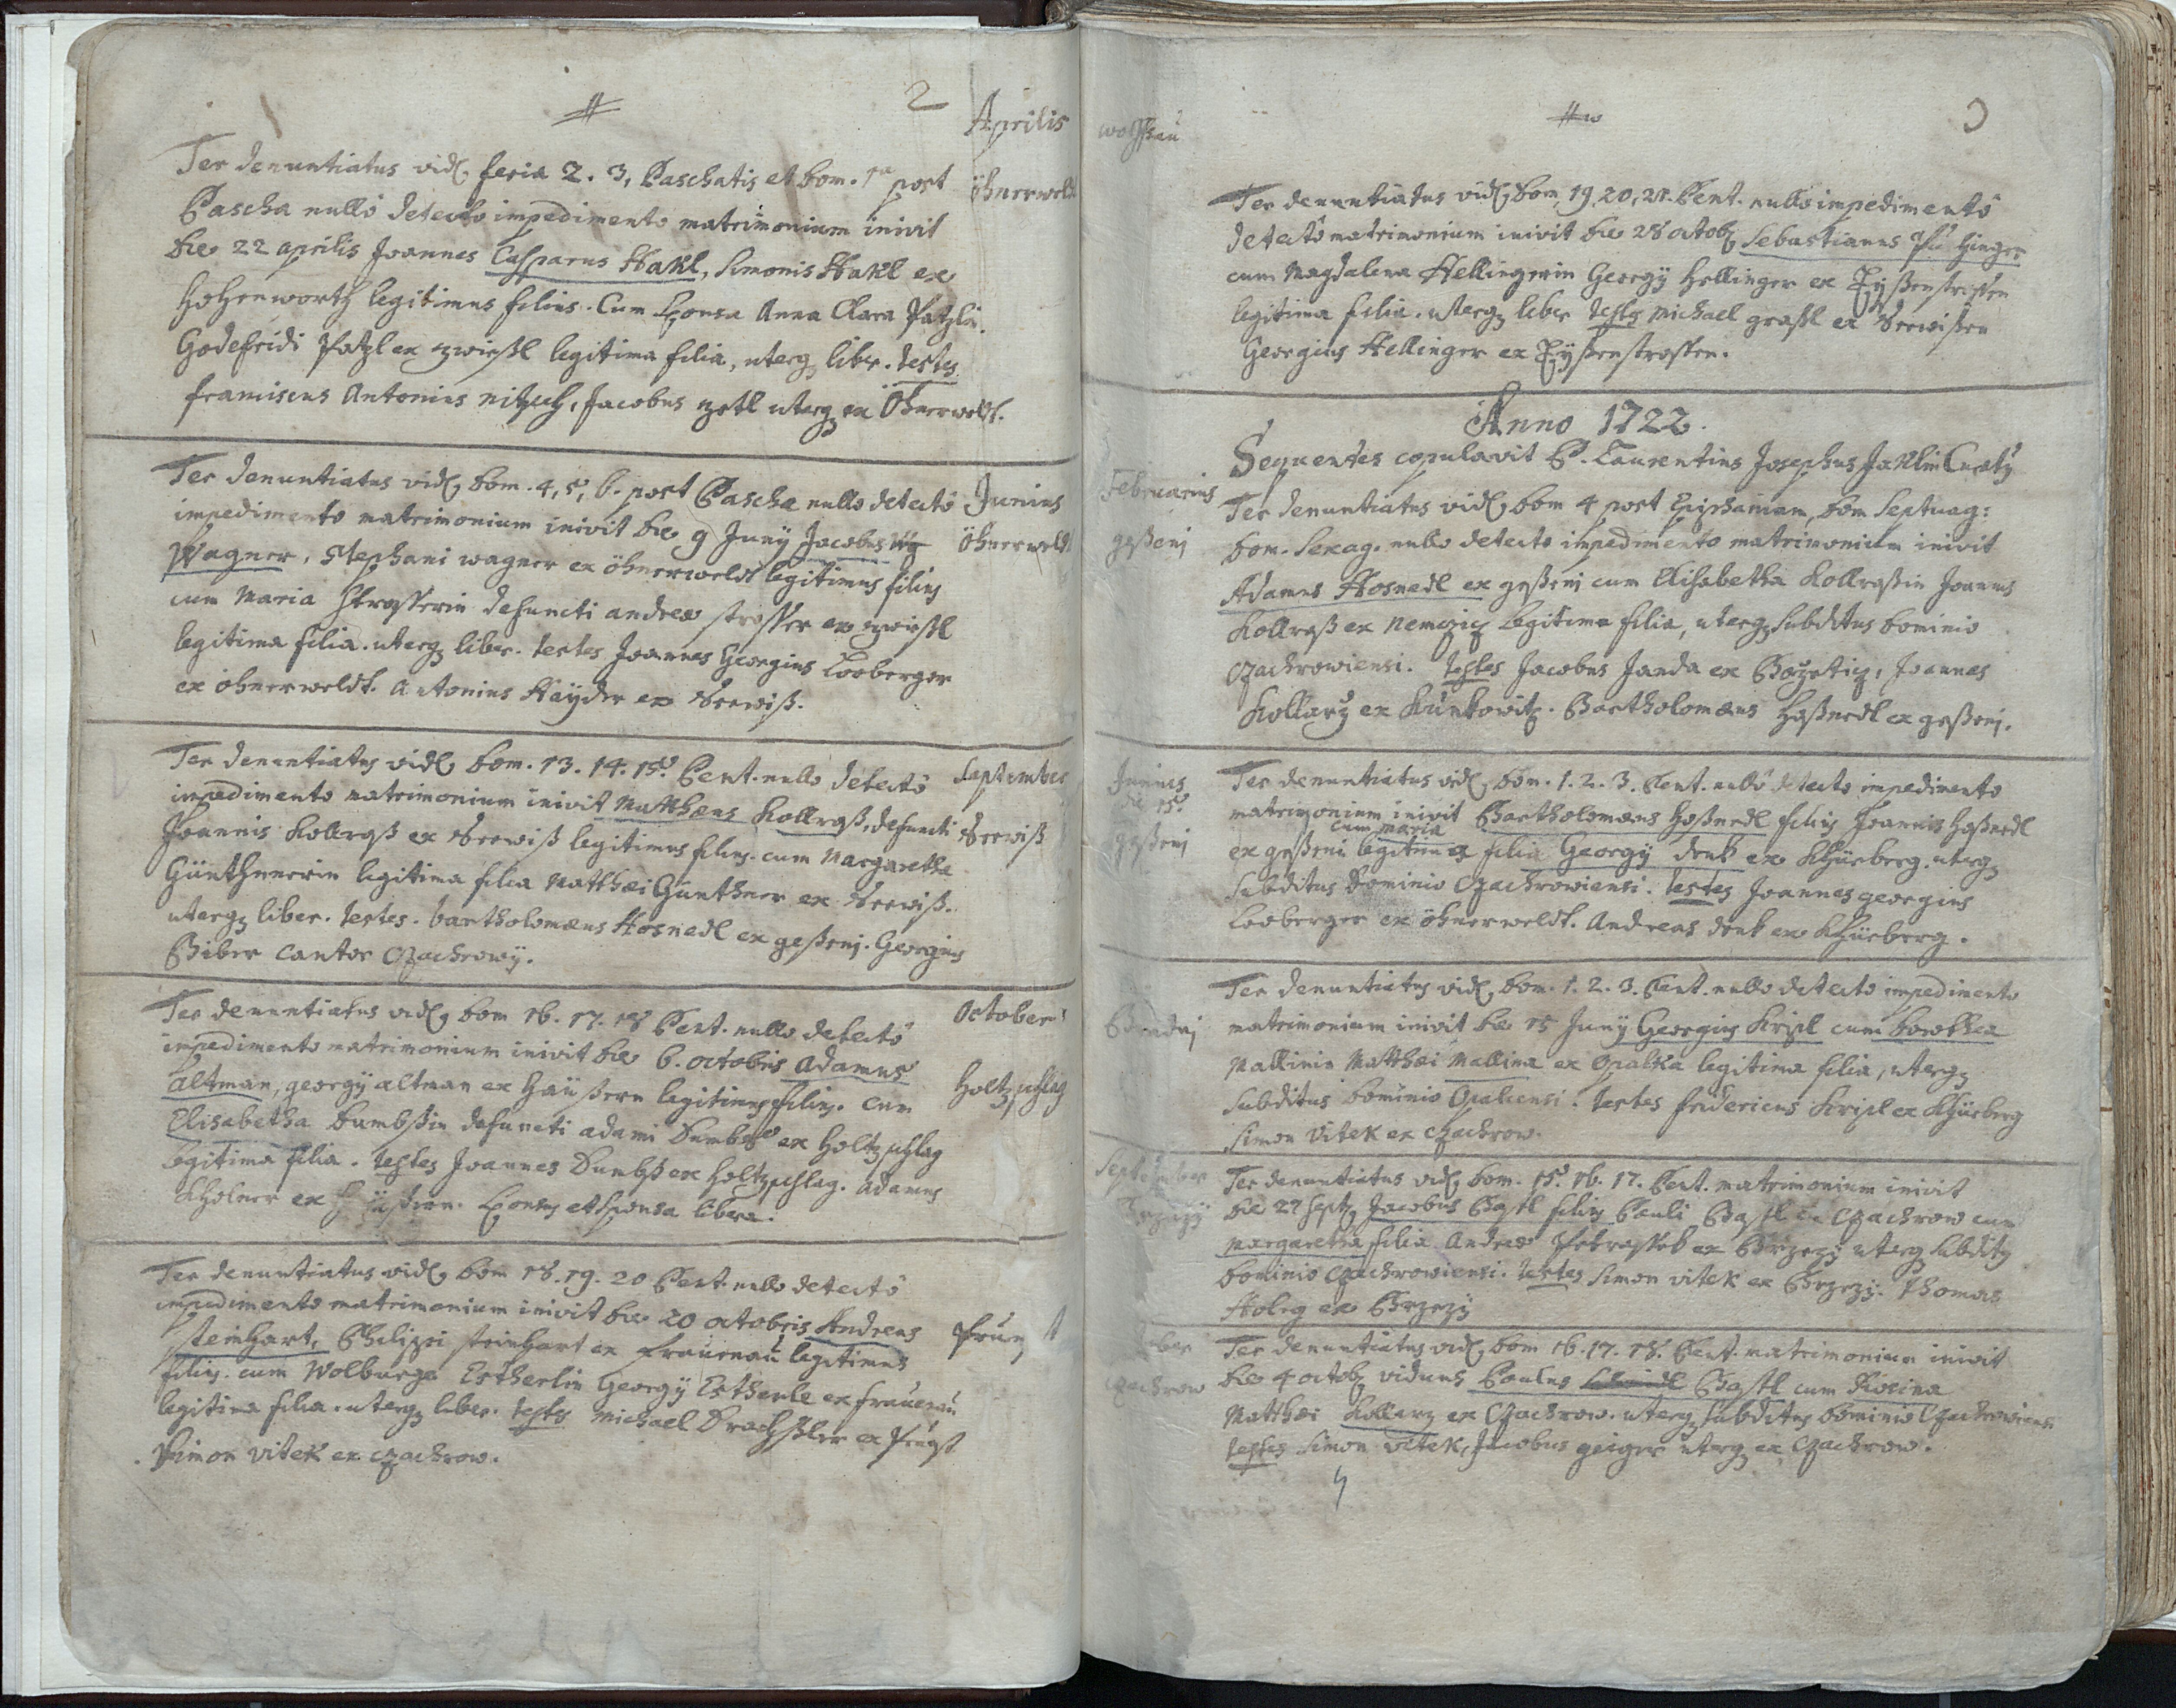 2
Aprilis
Ter denuntiatus vidl. feria 2. 3. Paschatis et Dom. 1a post
öhnerweldt
Pascha nullo detecto impedimento matrimonium inivit
die 22 aprilis Joannes Casparus Hakl, Simonis Hakl ex
Hohenworth legitimus filius. Cum Sponsa Anna Clara
Godefridi Patzl ex zwießl legitima filia, uterq liber. testes
franciscus Antonius nitsch, Jacobus zetl uterq ex Öhnerweldt.
Ter denuntiatus vidl. Dom. 4, 5, 6. post Pascha nullo detecto
Junius
impedimento matrimonium inivit die 9 Juny Jacobus
öhnerweldt
Wagner, Stephani wagner ex öhnerweldt legitimus filius
cum Maria Strasserin defuncti andreæ strasser ex zwießl
legitima filia. uterq liber. testes Joannes Georgius Looberger
ex öhnerweldt. Antonius Haÿder ex
Ter denuntiatus vidl. Dom. 13. 14. 15. Pent. nullo detecto
September
impedimento matrimonium inivit Matthæus Kollroß, defuncti
Joannis Kollroß ex legitimus filius. cum Margaretha
Günthnerin legitima filia Matthæi Günthner ex
uterq liber. testes. bartholomæus Hosnedl ex geßenj. Georgius
Biber Cantor Czachrowÿ.
Ter denuntiatus vidl. Dom 16. 17. 18 Pent. nullo detecto
October
impedimento matrimonium inivit die 6. octobris Adamus
altman, georgÿ altman ex haüßern legitimus filius. cum
Holtzschlag
Elisabetha Dumbßin defuncti adami Dumbß ex Holtzschlag
legitima filia. testes Joannes Dumbß ex Holtzschlag. adamus
Kholner ex Sponsus et sponsa libera.
Ter denuntiatus vidl. Dom 18. 19. 20 Pent. nullo detecto
impedimento matrimonium inivit die 20 octobris Andreas
steinhart, Philippi steinhart ex frauenau legitimus
filius. cum Wolburga Estherlin Georgÿ Estherle ex frauenau
legitima filia. uterq liber. testes Michael ex
Simon Vitek ex czachrow.
3
Ter denuntiatus vidl. Dom. 19. 20. 21. Pent. nullo impedimento
detecto matrimonium inivit die 28 octob. Sebastianus
cum Magdalena Hellingerin Georgÿ Hellinger ex Eÿßenstrassen
legitima filia. uterq liber testes Michael graßl ex
Georgius Hellinger ex Eÿßenstrassen.
Anno 1722.
Sequentes copulavit P. Laurentius Josephus Jaklin Curatq
Februarius
Ter denuntiatus vidl. Dom 4 post Epiphaniam, Dom Septuag:
geßenj
Dom. Sexag. nullo detecto impedimento matrimonium inivit
Adamus Hosnedl ex geßenj cum Elisabetha Kollroßin Joannis
Kollroß ex Nemczicz legitima filia, uterq subditus Dominio
Czachrowiensi. testes Jacobus Janda ex Bozeticz, Joannes
Kollarz ex Kunkowitz. Bartholomæus Hoßnedl ex geßenj.
Junius
die 15.
Ter denuntiatus vidl. Dom. 1. 2. 3. Pent. nullo detecto impedimento
matrimonium inivit Bartholomæus Hoßnedl filius Joannis Hoßnedl
cum maria
geßenj
ex geßenj legitima filia Georgÿ denk ex Khürberg. uterq
subditus Dominio Czachrowiensi. testes Joannes georgius
Looberger ex öhnerweldt. Andreas denk ex Khürberg.
Ter denuntiatus vidl. Dom. 1. 2. 3. Pent. nullo detecto impedimento
matrimonium inivit die 15 Junÿ Georgius Kripl cum Dorothea
Mallinin Matthæi Mallina ex Opalka legitima filia, uterq
subditus Dominio Opalcensi. testes fridericus Kripl ex Khürberg
Simon Vitek ex czachrow.
September
Ter denuntiatus vidl. Dom. 15. 16. 17. Pent. matrimonium inivit
die 27 septq Jacobus Bastl filius Pauli Bastl ex Czachrow cum
Margaretha filia Andreæ ex Brzezÿ uterq subditq
Dominio Czachrowiensi. testes Simon vitek ex Brzezÿ. Thomas
Holeg ex Brzezÿ
Ter denuntiatus vidl. Dom 16. 17. 18. Pent. matrimonium inivit
Czachrow
die 4 octob. viduus Paulus Bastl cum Rosina
Matthæi Kollarz ex Czachrow. uterq subditus Dominio Czachrowiensi.
testes Simon vitek, Jacobus geiger uterq ex Czachrow.